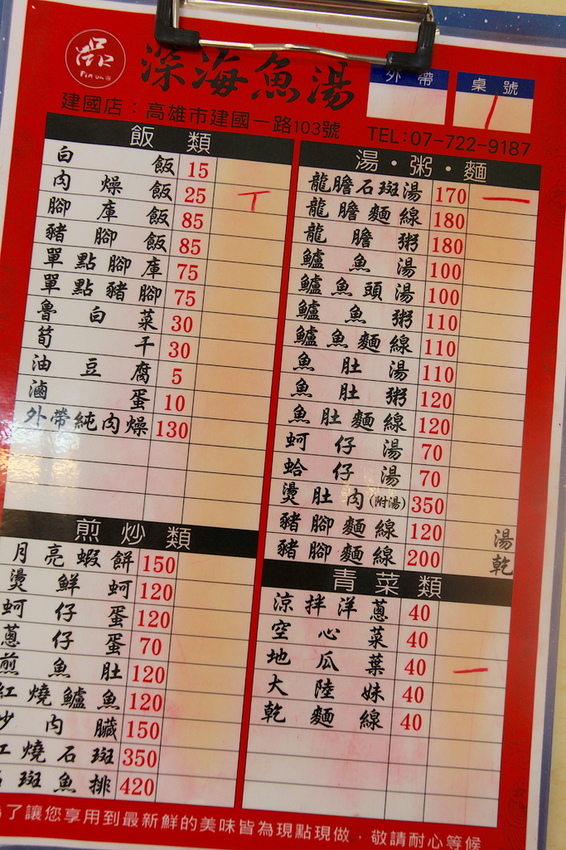 品
Pin un
深海魚湯
外帶
桌號
建國店：高雄市建國一路103號
TEL:07-722-9187
飯類
白飯 15
肉燥飯 25
腳庫飯 85
豬腳飯 85
單點腳庫 75
單點豬腳 75
魯白菜 30
筍干 30
油豆腐 5
滷蛋 10
外帶純肉燥 130
煎炒類
月亮蝦餅 150
燙鮮蚵 120
蚵仔蛋 120
蔥仔蛋 70
煎魚肚 120
紅燒鱸魚 120
炒肉臟 150
紅燒石斑 350
石斑魚排 420
湯·粥·麵
龍膽石斑湯 170
龍膽麵線 180
龍膽粥 180
鱸魚湯 100
鱸魚頭湯 100
鱸魚粥 110
鱸魚麵線 110
魚肚湯 110
魚肚粥 120
魚肚麵線 120
蚵仔湯 70
蛤仔湯 70
燙肚肉(附湯) 350
豬腳麵線 120 湯
豬腳麵線 200 乾
青菜類
涼拌洋蔥 40
空心菜 40
地瓜葉 40
大陸妹 40
乾麵線 40
了讓您享用到最新鮮的美味皆為現點現做，敬請耐心等候